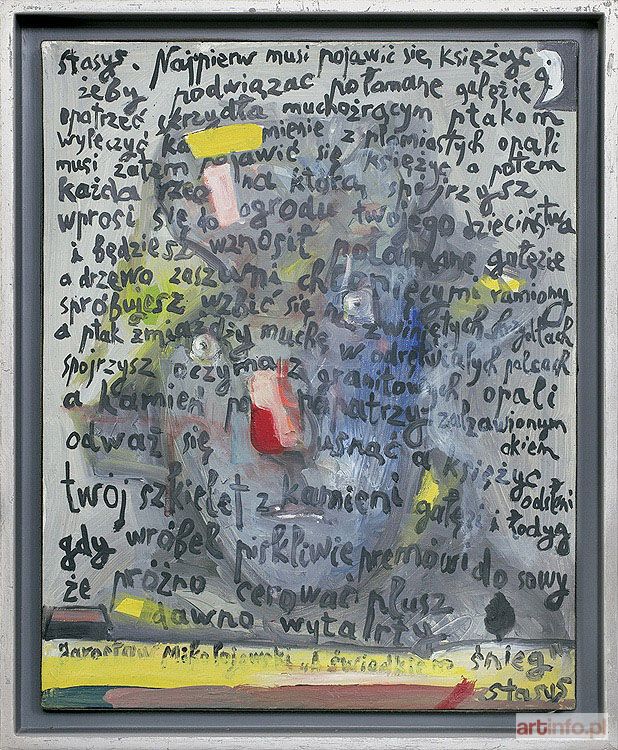 stasys. Najpierw musi pojawić się księżyc
żeby podwiązać połamane gałęzie
opatrzeć skrzydła muchożrącym ptakom
wyleczyć kamienie z plamiastych opali
musi zatem pojawić się księżyc a potem
każda rzecz na którą spojrzysz
wprosi się do ogrodu twojego dzieciństwa
i będziesz wznosił połamane gałęzie
a drzewo zaszumi chłonącymi ramiony
spróbujesz wzbić się na zwiniętych
a ptak zmiażdży muchę w odrękwiałych palcach
spojrzysz oczyma z granitowych opali
a kamień popatrzy załzawionym
odważ się usnąć a księżyc okiem
twój szkielet z kamieni odsłoni
gałęzi i łodyg
gdy wróbel piskliwie przemówi do sowy
że próżno cerować plusz
dawno wytarty
Jarosław Mikołajewski "A świadkiem śnieg"
stasys
artinfo.pl